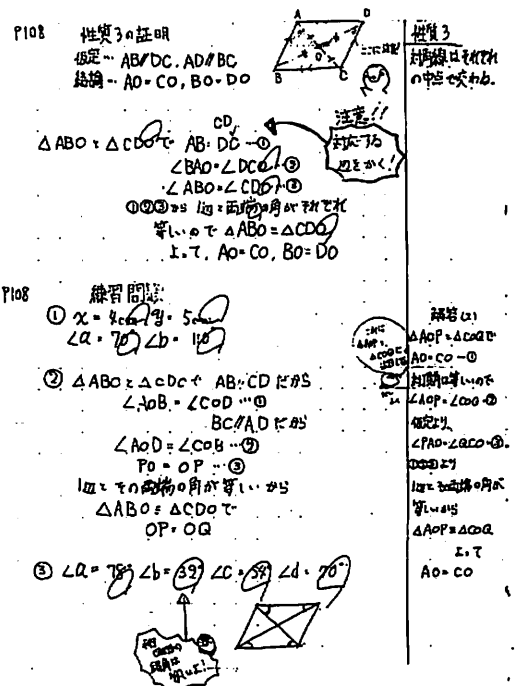 P108 性質3の証明
仮定… AB//DC, AD//BC
結論… AO=CO, BO=DO
A D
O
B C
ここに注目!
性質3
対角線はそれぞれ
の中点で交わる。
注意!!
対応する
辺をかく!
CD
△ABOと△CDOで AB=DC…①
∠BAO=∠DCO…②
∠ABO=∠CDO…③
①②③から 1辺と両端の角がそれぞれ
等しいので △ABO≡△CDO
よって, AO=CO, BO=DO
P108 練習問題
① x=4cm y=5cm
∠a=70° ∠b=110°
② △ABOと△CDOで AB//CDだから
∠AOB=∠COD…①
BC//ADだから
∠AOD=∠COB…②
PO=OP…③
1辺とその両端の角が等しいから
△ABO≡△CDOで
OP=OQ
③ ∠a=78° ∠b=39° ∠c=54° ∠d=70°
解答(2)
△AOP≡△COQで
AO=CO…①
対頂角は等しいので
∠AOP=∠COQ…②
仮定より,
∠PAO=∠QCO…③
①②③より
1辺と両端の角が
等しいから
△AOP≡△COQ
よって
AO=CO